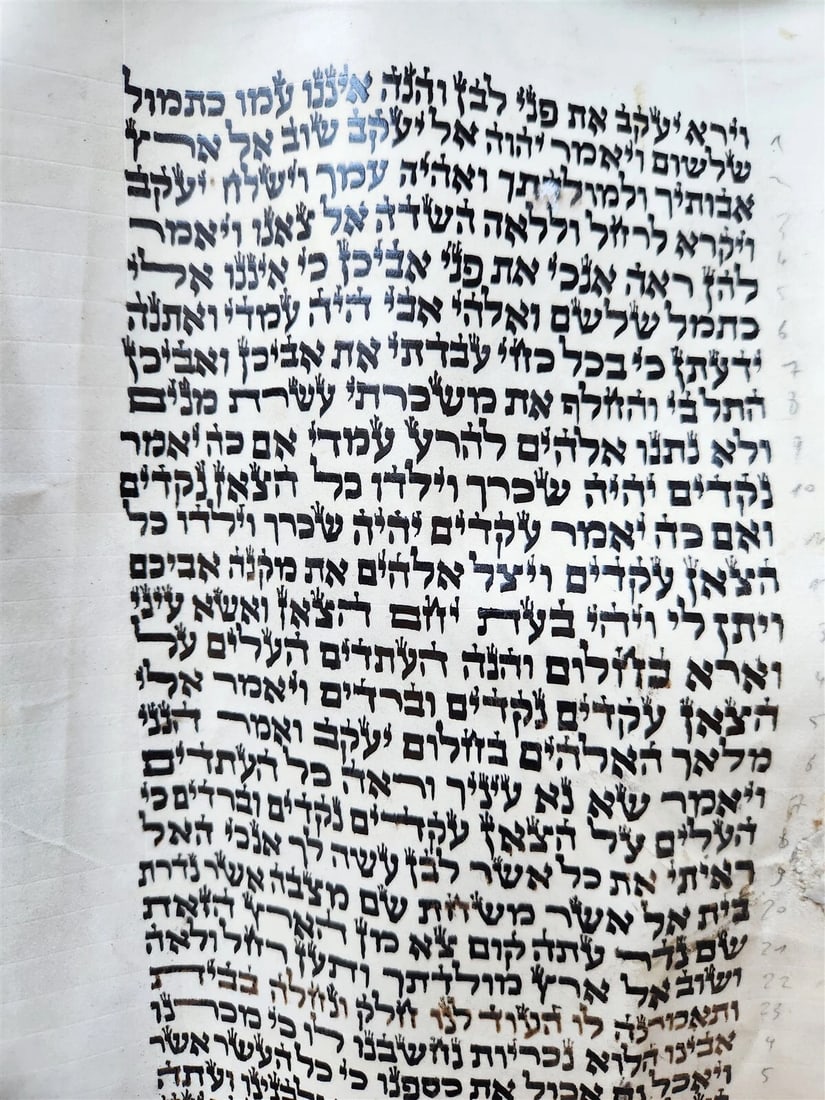 וירא יעקב את פני לבן והנה איננו עמו כתמול
שלשום ויאמר יהוה אל יעקב שוב אל ארץ
אבותיך ולמולדתך ואהיה עמך וישלח יעקב
ויקרא לרחל וללאה השדה אל צאנו ויאמר
להן ראה אנכי את פני אביכן כי איננו אלי
כתמל שלשם ואלהי אבי היה עמדי ואתנה
ידעתן כי בכל כחי עבדתי את אביכן ואביכן
התל בי והחלף את משכרתי עשרת מנים
ולא נתנו אלהים להרע עמדי אם כה יאמר
נקדים יהיה שכרך וילדו כל הצאן נקדים
ואם כה יאמר עקדים יהיה שכרך וילדו כל
הצאן עקדים ויצל אלהים את מקנה אביכם
ויתן לי ויהי בעת יחם הצאן ואשא עיני
וארא בחלום והנה העתדים העלים על
הצאן עקדים נקדים וברדים ויאמר אלי
מלאך האלהים בחלום יעקב ואמר הנני
ויאמר שא נא עיניך וראה כל העתדים
העלים על הצאן עקדים נקדים וברדים כי
ראיתי את כל אשר לבן עשה לך אנכי האל
בית אל אשר משחת שם מצבה אשר נדרת
שם נדר עתה קום צא מן הארץ הזאת
ושוב אל ארץ מולדתך ותען רחל ולאה
ותאמרנה לו העוד לנו חלק ונחלה בבית
אבינו הלוא נכריות נחשבנו לו כי מכרנו
ויאכל גם אכול את כספנו כי כל העשר אשר
ולבנינו ועתה